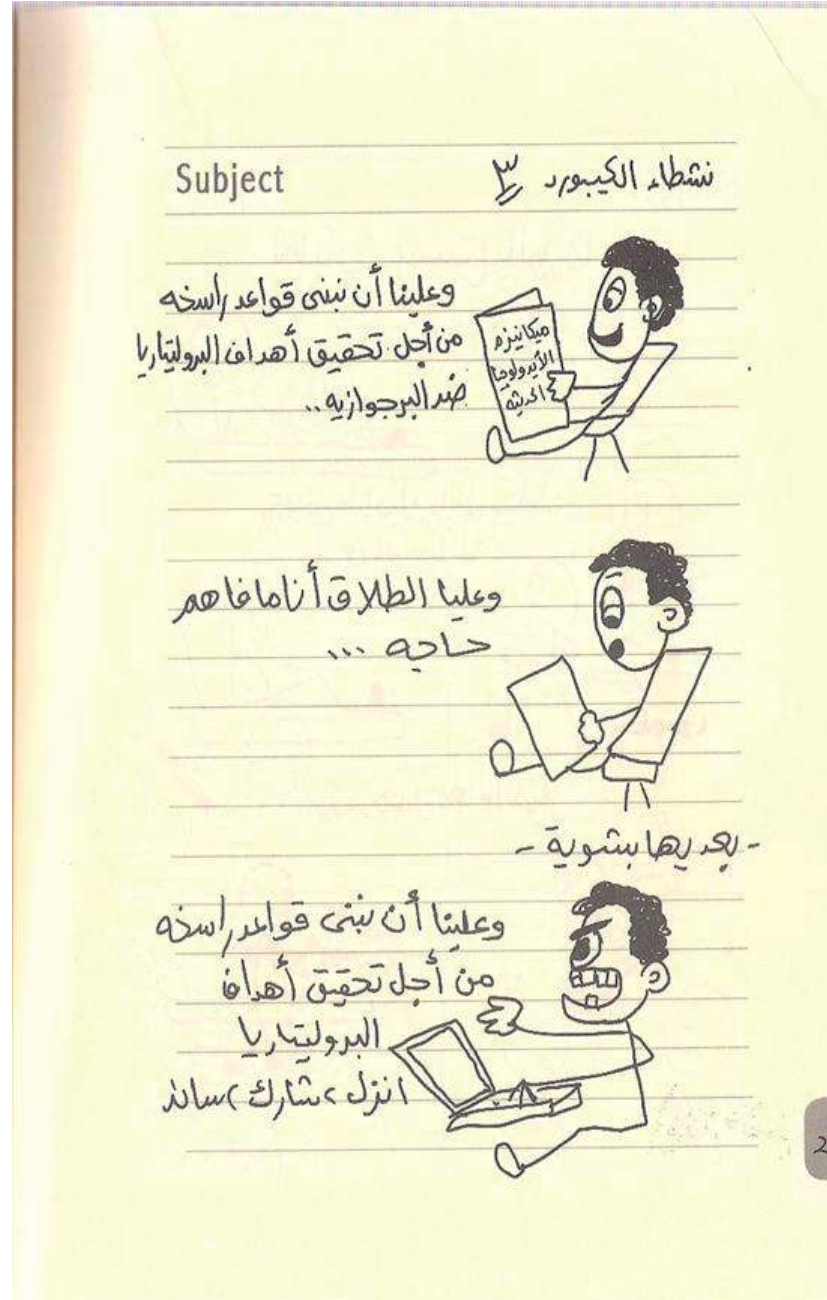 Subject
نشطاء الكيبورد ٣
وعلينا أن نبنى قواعد راسخه
من أجل تحقيق أهداف البروليتاريا
ضد البرجوازيه..
ميكانيزم
الأيدولوجيا
الحديثه
وعليا الطلاق أنا ما فاهم
حاجه ...
- بعديها بشوية -
وعلينا أن نبنى قواعد راسخه
من أجل تحقيق أهداف
البروليتاريا
انزل، شارك، ساند
2